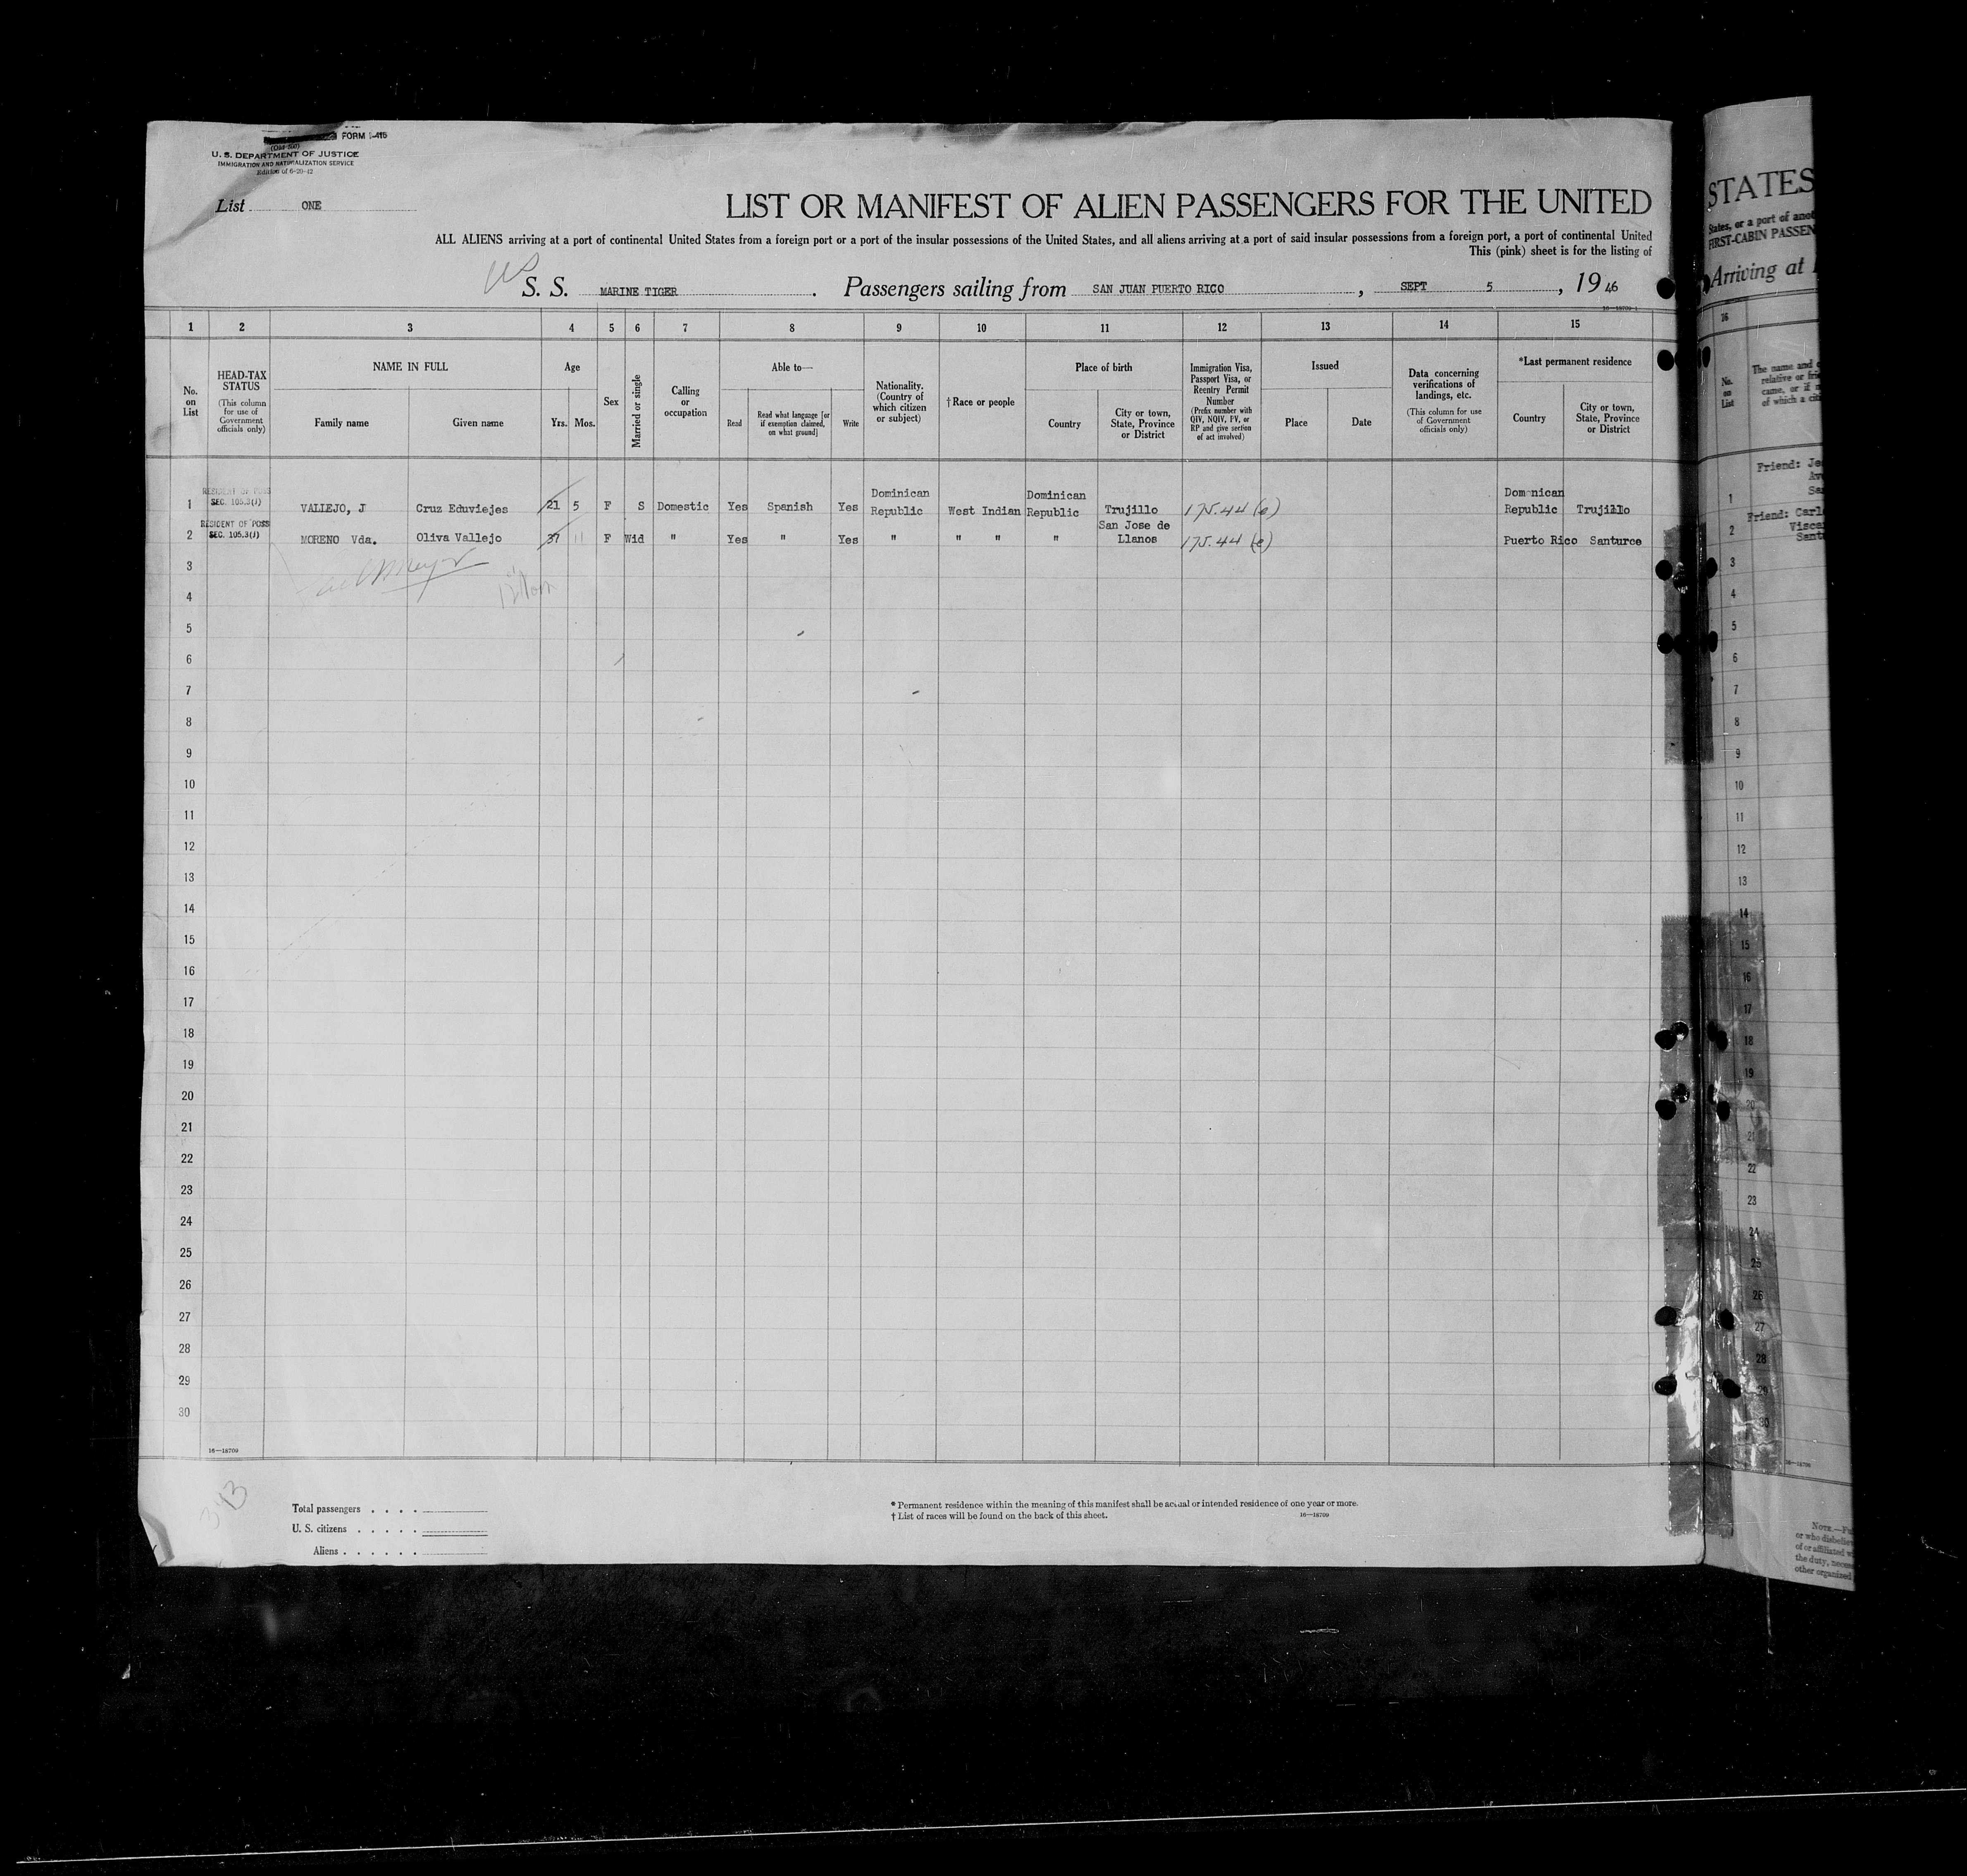 FORM I-415
(Old 500)
U. S. DEPARTMENT OF JUSTICE
IMMIGRATION AND NATURALIZATION SERVICE
Edition of 6-20-42
List ONE
LIST OR MANIFEST OF ALIEN PASSENGERS FOR THE UNITED
ALL ALIENS arriving at a port of continental United States from a foreign port or a port of the insular possessions of the United States, and all aliens arriving at a port of said insular possessions from a foreign port, a port of continental United
This (pink) sheet is for the listing of
US S. S. MARINE TIGER . Passengers sailing from SAN JUAN PUERTO RICO , SEPT 5 , 19 46
16—18709-1
1 2 3 4 5 6 7 8 9 10 11 12 13 14 15
No. on List
HEAD-TAX STATUS (This column for use of Government officials only)
NAME IN FULL Family name Given name
Age Yrs. Mos.
Sex
Married or single
Calling or occupation
Able to— Read Read what language [or if exemption claimed, on what ground] Write
Nationality. (Country of which citizen or subject)
†Race or people
Place of birth Country City or town, State, Province or District
Immigration Visa, Passport Visa, or Reentry Permit Number (Prefix number with QIV, NQIV, PV, or RP and give section of act involved)
Issued Place Date
Data concerning verifications of landings, etc. (This column for use of Government officials only)
*Last permanent residence Country City or town, State, Province or District
1 RESIDENT OF POSS SEC. 105.3(J) VALLEJO, J Cruz Eduviejes 21 5 F S Domestic Yes Spanish Yes Dominican Republic West Indian Dominican Republic Trujillo 175.44 (e) Domenican Republic Trujillo
2 RESIDENT OF POSS SEC. 105.3(J) MORENO Vda. Oliva Vallejo 37 11 F Wid " Yes " Yes " " " " San Jose de Llanos 175.44 (e) Puerto Rico Santurce
3
4
5
6
7
8
9
10
11
12
13
14
15
16
17
18
19
20
21
22
23
24
25
26
27
28
29
30
16—18709
Total passengers . . . .
U. S. citizens . . . . .
Aliens . . . . . .
* Permanent residence within the meaning of this manifest shall be actual or intended residence of one year or more.
† List of races will be found on the back of this sheet.
16—18709
STATES
States, or a port of
FIRST-CABIN
Arriving at
16
No. on List
The name and
relative or
came, or if
of which a
1 Friend:
2 Friend: Carl
3
4
5
6
7
8
9
10
11
12
13
14
15
16
17
18
19
20
21
22
23
24
25
26
27
28
29
30
NOTE.
or who
of or affiliated
the duty,
other organized